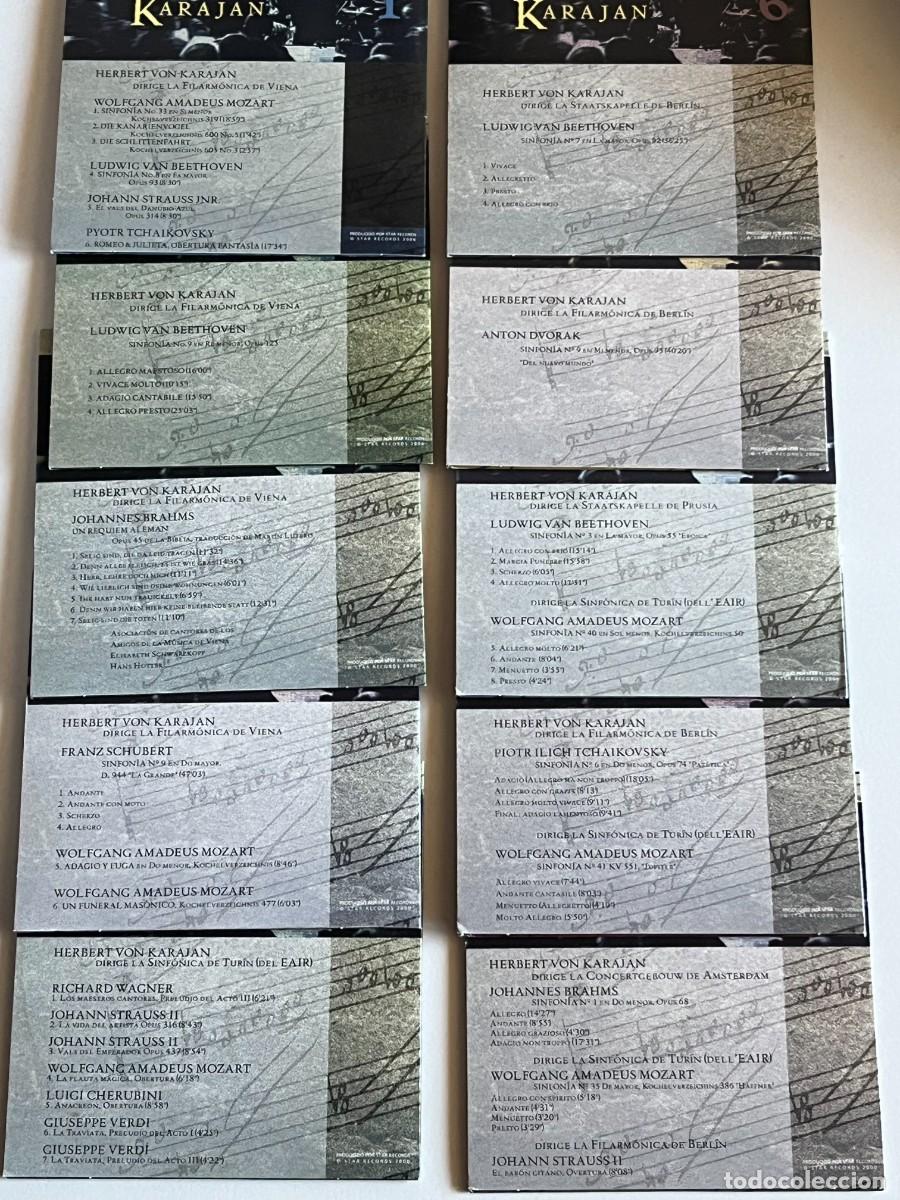 KARAJAN 1
HERBERT VON KARAJAN
DIRIGE LA FILARMÓNICA DE VIENA
WOLFGANG AMADEUS MOZART
1. SINFONÍA No. 33 EN SI MENOR
KOCHELVERZEICHNIS 319 (18'59")
2. DIE KANARIENVOGEL
KOCHELVERZEICHNIS 600 No. 5 (1'42")
3. DIE SCHLITTENFAHRT
KOCHELVERZEICHNIS 605 No. 3 (2'57")
LUDWIG VAN BEETHOVEN
4. SINFONÍA No. 8 EN FA MAYOR
OPUS 93 (8'30")
JOHANN STRAUSS JNR.
5. EL VALS DEL DANUBIO AZUL
OPUS 314 (8'30")
PYOTR TCHAIKOVSKY
6. ROMEO & JULIETA, OBERTURA FANTASÍA (17'34")
PRODUCIDO POR STAR RECORDS
© STAR RECORDS 2000
HERBERT VON KARAJAN
DIRIGE LA FILARMÓNICA DE VIENA
LUDWIG VAN BEETHOVEN
SINFONÍA No. 9 EN RE MENOR, OPUS 125
1. ALLEGRO MAESTOSO (16'00")
2. VIVACE MOLTO (10'15")
3. ADAGIO CANTABILE (15'50")
4. ALLEGRO PRESTO (25'03")
PRODUCIDO POR STAR RECORDS
© STAR RECORDS 2000
HERBERT VON KARAJAN
DIRIGE LA FILARMÓNICA DE VIENA
JOHANNES BRAHMS
UN REQUIEM ALEMAN
OPUS 45 DE LA BIBLIA, TRADUCCIÓN DE MARTIN LUTERO
1. SELIG SIND, DIE DA LEID TRAGEN (11'32")
2. DENN ALLES FLEISCH, ES IST WIE GRAS (14'36")
3. HERR, LEHRE DOCH MICH (11'21")
4. WIE LIEBLICH SIND DEINE WOHNUNGEN (6'01")
5. IHR HABT NUN TRAUIGKELT (6'59")
6. DENN WIR HABEN HIER KEINE BLEIBENDE STATT (12'31")
7. SELIG SIND DIE TOTEN (11'10")
ASOCIACIÓN DE CANTORES DE LOS
AMIGOS DE LA MÚSICA DE VIENA
ELISABETH SCHWARZKOPF
HANS HOTTER
PRODUCIDO POR STAR RECORDS
© STAR RECORDS 2000
HERBERT VON KARAJAN
DIRIGE LA FILARMÓNICA DE VIENA
FRANZ SCHUBERT
SINFONÍA Nº 9 EN DO MAYOR,
D. 944 "LA GRANDE" (47'03)
1. ANDANTE
2. ANDANTE CON MOTO
3. SCHERZO
4. ALLEGRO
WOLFGANG AMADEUS MOZART
5. ADAGIO Y FUGA EN DO MENOR, KOCHELVERZEICHNIS (8'46")
WOLFGANG AMADEUS MOZART
6. UN FUNERAL MASÓNICO, KOCHELVERZEICHNIS 477 (6'03")
PRODUCIDO POR STAR RECORDS
© STAR RECORDS 2000
HERBERT VON KARAJAN
DIRIGE LA SINFÓNICA DE TURÍN (DEL EAIR)
RICHARD WAGNER
1. LOS MAESTROS CANTORES, PRELUDIO DEL ACTO III (6'21")
JOHANN STRAUSS II
2. LA VIDA DEL ARTISTA OPUS 316 (8'43")
JOHANN STRAUSS II
3. VALS DEL EMPERADOR OPUS 437 (8'54")
WOLFGANG AMADEUS MOZART
4. LA FLAUTA MÁGICA, OBERTURA (6'18")
LUIGI CHERUBINI
5. ANACREON, OBERTURA (8'58")
GIUSEPPE VERDI
6. LA TRAVIATA, PRELUDIO DEL ACTO I (4'25")
GIUSEPPE VERDI
7. LA TRAVIATA, PRELUDIO DEL ACTO III (4'22")
PRODUCIDO POR STAR RECORDS
© STAR RECORDS 2000
KARAJAN 6
HERBERT VON KARAJAN
DIRIGE LA STAATSKAPELLE DE BERLÍN
LUDWIG VAN BEETHOVEN
SINFONÍA Nº 7 EN LA MAYOR, OPUS 92 (36'25")
1. VIVACE
2. ALLEGRETTO
3. PRESTO
4. ALLEGRO CON BRIO
PRODUCIDO POR STAR RECORDS
© STAR RECORDS 2000
HERBERT VON KARAJAN
DIRIGE LA FILARMÓNICA DE BERLÍN
ANTON DVORAK
SINFONÍA Nº 9 EN MI MENOR, OPUS 95 (40'20")
"DEL NUEVO MUNDO"
PRODUCIDO POR STAR RECORDS
© STAR RECORDS 2000
HERBERT VON KARAJAN
DIRIGE LA STAATSKAPELLE DE PRUSIA
LUDWIG VAN BEETHOVEN
SINFONÍA Nº 3 EN LA MAYOR, OPUS 55 "EROICA"
1. ALLEGRO CON BRIO (15'14")
2. MARCIA FUNEBRE (15'58")
3. SCHERZO (6'05")
4. ALLEGRO MOLTO (12'51")
DIRIGE LA SINFÓNICA DE TURÍN (DELL'EAIR)
WOLFGANG AMADEUS MOZART
SINFONÍA Nº 40 EN SOL MENOR, KOCHELVERZEICHINS 50
5. ALLEGRO MOLTO (6'21")
6. ANDANTE (8'04")
7. MENUETTO (3'55")
8. PRESTO (4'24")
PRODUCIDO POR STAR RECORDS
© STAR RECORDS 2000
HERBERT VON KARAJAN
DIRIGE LA FILARMÓNICA DE BERLÍN
PIOTR ILICH TCHAIKOVSKY
SINFONÍA Nº 6 EN DO MENOR, OPUS 74 "PATÉTICA"
ADAGIO (ALLEGRO MA NON TROPPO) (18'05")
ALLEGRO CON GRAZIE (8'13)
ALLEGRO MOLTO VIVACE (9'11")
FINAL: ADAGIO LAMENTOSO (9'41")
DIRIGE LA SINFÓNICA DE TURÍN (DELL'EAIR)
WOLFGANG AMADEUS MOZART
SINFONÍA Nº 41 KV 551, "JÚPITER"
ALLEGRO VIVACE (7'44")
ANDANTE CANTABILE (8'03")
MENUETTO (ALLEGRETTO) (4'10")
MOLTO ALLEGRO (5'50")
PRODUCIDO POR STAR RECORDS
© STAR RECORDS 2000
HERBERT VON KARAJAN
DIRIGE LA CONCERTGEBOUW DE AMSTERDAM
JOHANNES BRAHMS
SINFONÍA Nº 1 EN DO MENOR, OPUS 68
ALLEGRO (14'27")
ANDANTE (8'55")
ALLEGRO GRAZIOSO (4'30")
ADAGIO NON TROPPO (17'31")
DIRIGE LA SINFÓNICA DE TURÍN (DELL'EAIR)
WOLFGANG AMADEUS MOZART
SINFONÍA Nº 35 DE MAYOR, KOCHELVERZEICHINS 386 "HAFFNER"
ALLEGRO CON SPIRITO (5'18")
ANDANTE (4'31")
MENUETTO (3'20")
PRESTO (3'29")
DIRIGE LA FILARMÓNICA DE BERLÍN
JOHANN STRAUSS II
EL BARÓN GITANO, OVERTURA (8'08")
PRODUCIDO POR STAR RECORDS
© STAR RECORDS 2000
todocoleccion